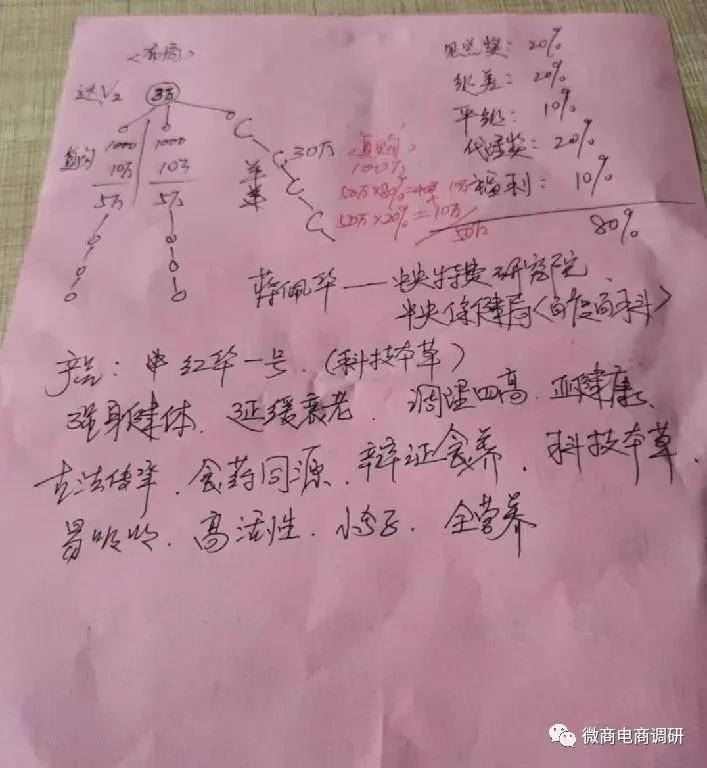 <布局>
送1/2
35
1000
1000
10万
10万
5万
5万
30万
见点奖: 20%
级差: 20%
平级: 10%
代理奖: 20%
福利: 10%
80%
1000万
50万×80%=40万
50万×20%=10万
50万
蒋佩华——中央特费研究院、
中央保健局<百度百科>
产品: 中红华一号.(科技本草)
强身健体、延缓衰老、调理四高、亚健康、
古法传承、食药同源、辩证食养、科技本草、
胃吸收、高活性、小分子、全营养
微商电商调研